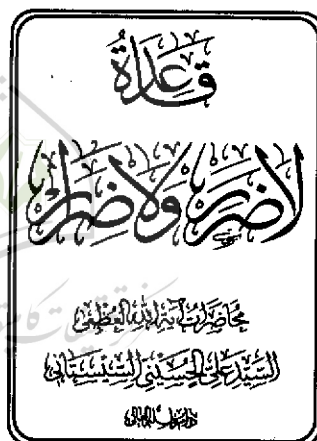 قاعدة
لا ضرر ولا ضرار
محاضرات آية الله العظمى
السيد علي الحسيني السيستاني
دام ظله العالي